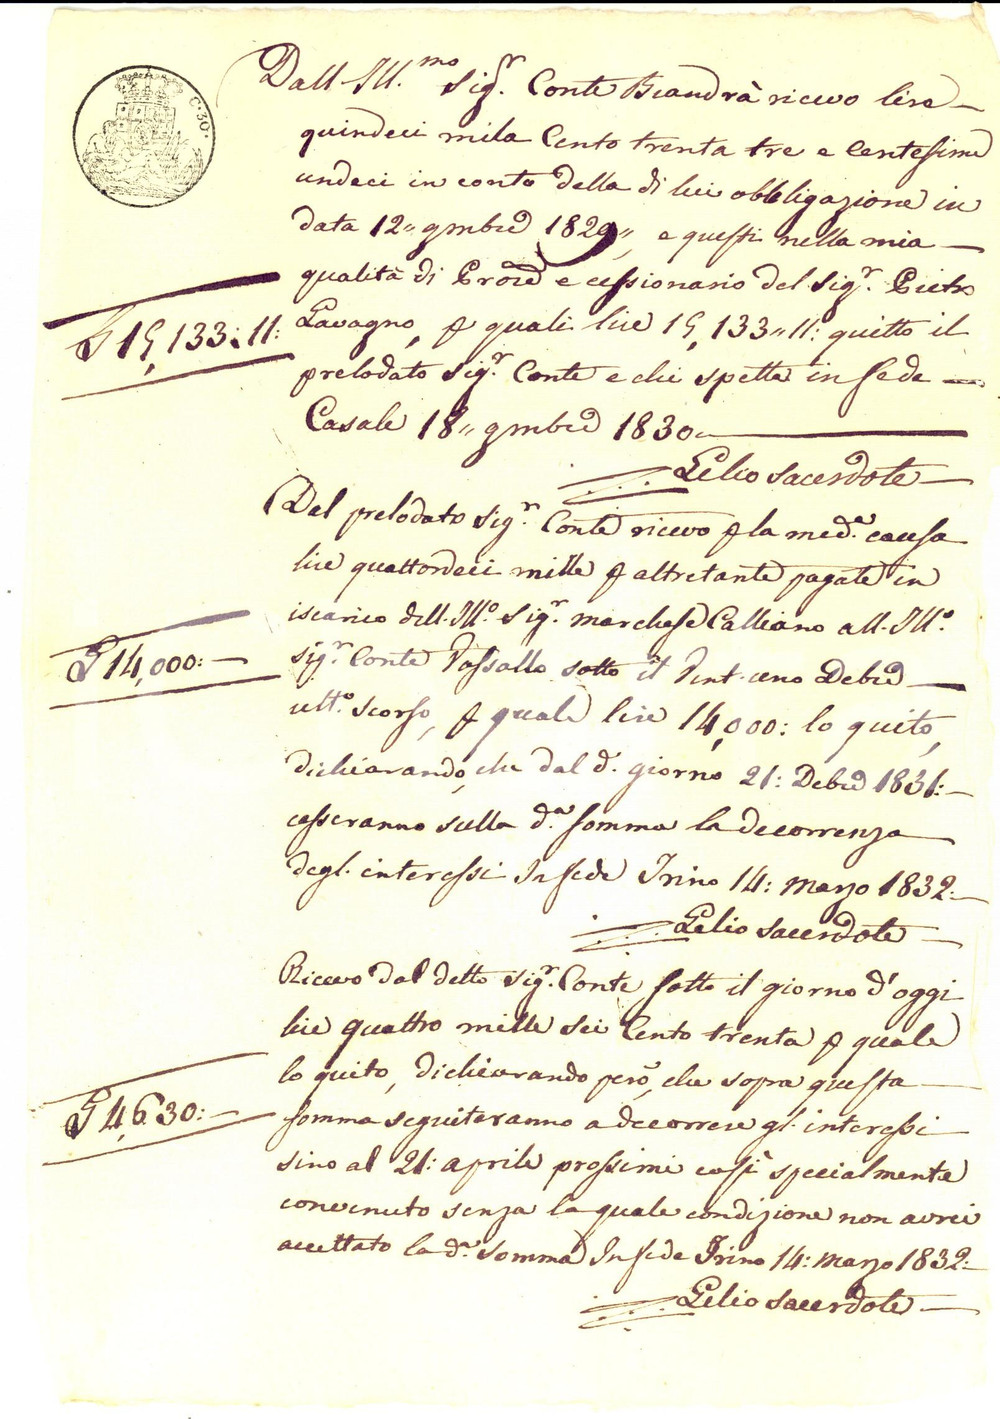 C. 30.
Dall Ill.mo Sig.r Conte Biandrà ricevo lire
quindeci mila Cento trenta tre e Centesimi
undeci in conto della di lui obbligazione in
data 12,, gmbre 1829,, e questi nella mia
qualità di e cessionario del Sig.r Pietro
£ 15,133: 11:
Lavagno, p quali lire 15,133,, 11: quitto il
prelodato Sig.r Conte e chi spetta in fede
Casale 18,, gmbre 1830
Lelio Sacerdote
Dal prelodato Sig.r Conte ricevo p la med.a causa
lire quattordeci mille p altretante pagate in
iscarico dell Ill.o Sig.r Marchese Calliano all Ill.o
£ 14,000:
Sig.r Conte Vassallo sotto il Debre
ult.o scorso, p quale lire 14,000: lo quito,
dichiarando, che dal d.o giorno 21: Debre 1831:
cesseranno sulla d.a somma la decorrenza
degl. interessi In fede Trino 14: Marzo 1832:
Lelio Sacerdote
Ricevo dal detto Sig.r Conte sotto il giorno d'oggi
lire quattro mille sei Cento trenta p quale
lo quito, dichiarando però, che sopra questa
£ 4,630:
somma seguiteranno a decorrere gl. interessi
sino al 21: aprile prossimi così specialmente
convenuto senza la quale condizione non avrei
accettato la d.a somma In fede Trino 14: Marzo 1832:
Lelio Sacerdote